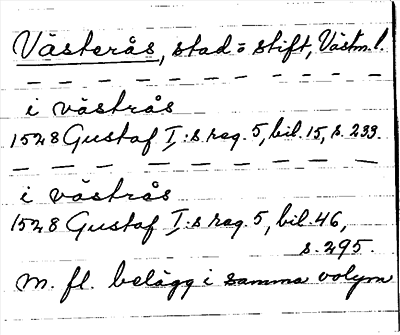 Västerås, stad o stift, Västm. l.
i västrås
1528 Gustaf I:s reg. 5, bil. 15, s. 233.
i västrås
1528 Gustaf I:s reg. 5, bil. 46,
s. 295.
m. fl. belägg i samma volym